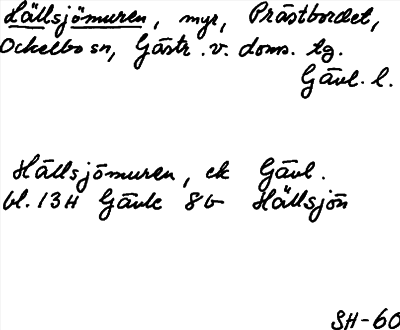 Hällsjömuren, myr, Prästbordet,
Ockelbo sn, Gästr. v. doms. tg.
Gävl. l.
Hällsjömuren, ek Gävl.
bl. 13H Gävle 8b Hällsjön
SH-60